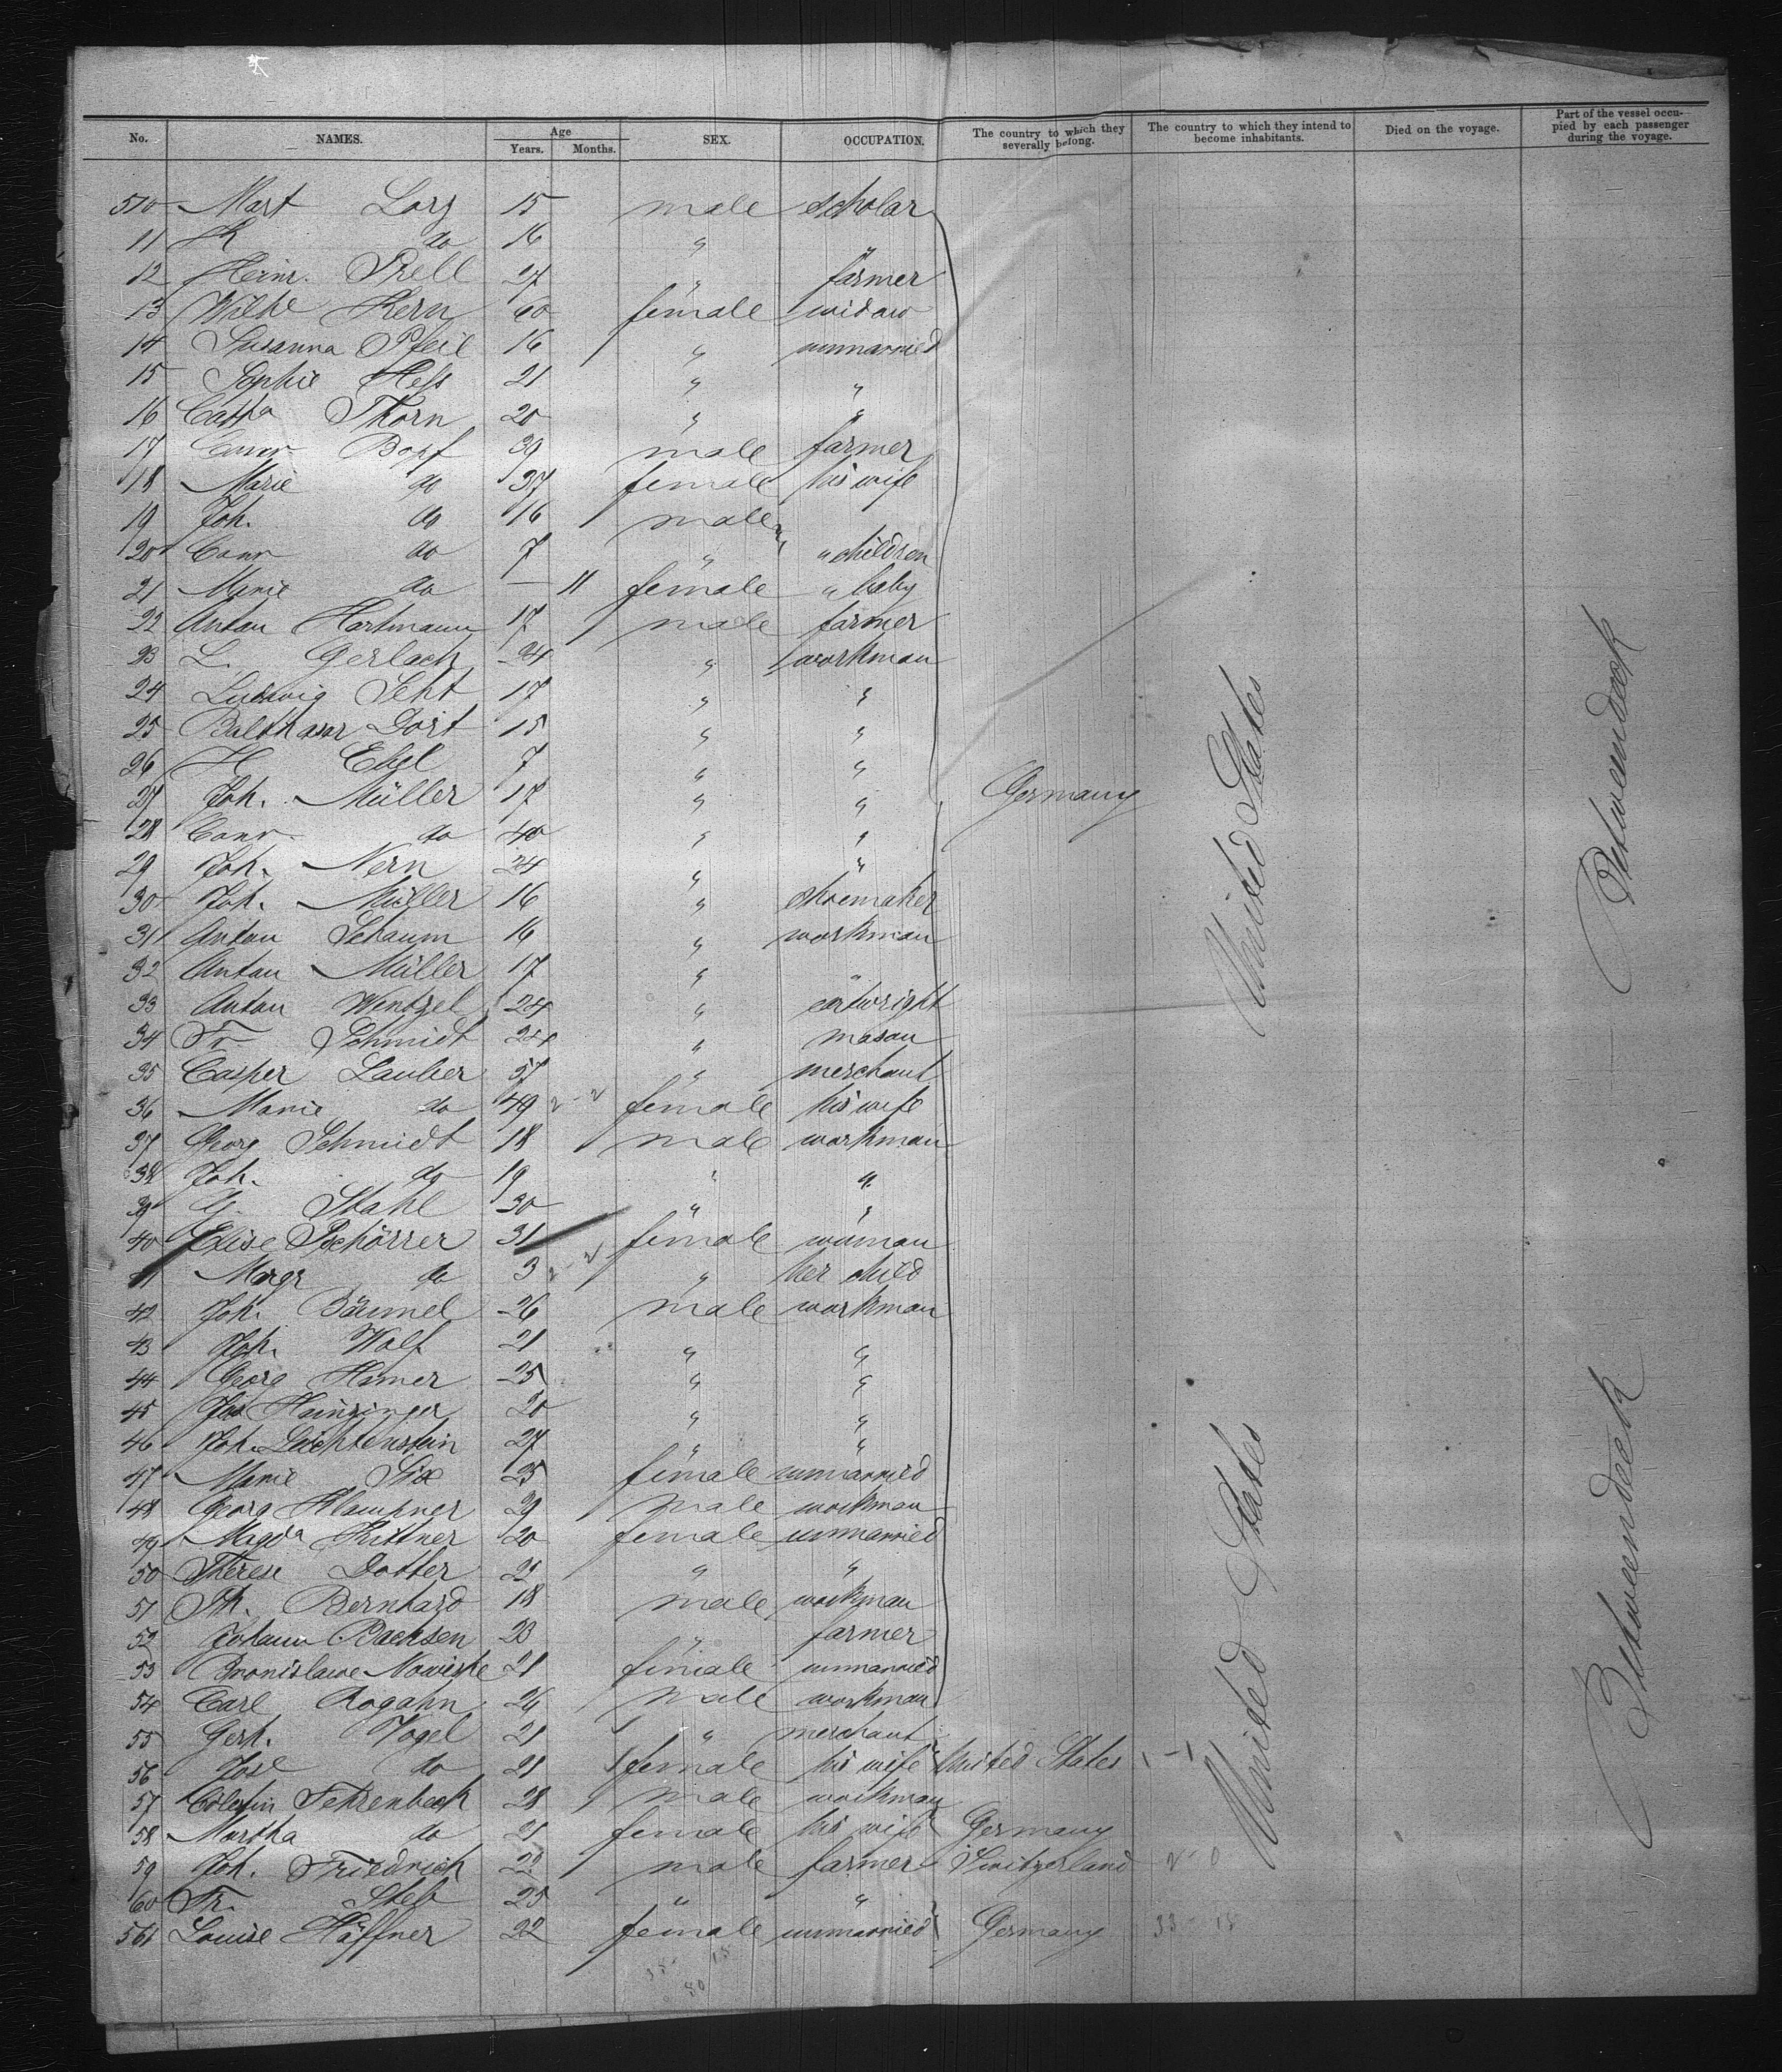 No. NAMES. Age Years. Months. SEX. OCCUPATION. The country to which they severally belong. The country to which they intend to become inhabitants. Died on the voyage. Part of the vessel occupied by each passenger during the voyage.
510 Mart Lorz 15 male scholar
11 K do 16 " "
12 Heinr. Prell 27 " farmer
13 Wilhe Kern 60 female widow
14 Susanna Pfeil 16 " unmarried
15 Sophie Hess 21 " "
16 Catha Thorn 20 " "
17 Conr Bopf 39 male farmer
18 Marie do 37 female his wife
19 Joh. do 16 male
20 Conr do 7 " " children
21 Marie do — 11 female " baby
22 Anton Hartmann 17 male farmer
23 L. Gerlach 24 " workman
24 Ludwig Seht 17 " "
25 Balthasar Dort 15 " "
26 H Ebel 7 " "
27 Joh. Müller 17 " " Germany
28 Conr do 40 " "
29 Joh. Nern 24 " "
30 Joh. Müller 16 " shoemaker
31 Anton Schaum 16 " workman
32 Anton Müller 17 " "
33 Anton Wentzel 24 " cartwright
34 Fr Schmidt 24 " mason
35 Casper Lauber 57 " merchant
36 Marie do 49 female his wife
37 Georg Schmidt 18 male workman
38 Joh. do 19 " "
39 G. Stahl 30 " "
40 Elise Pschörrer 31 female woman
41 Margr do 3 " her child
42 Joh. Bäumel 26 male workman
43 Joh. Wolf 21 " "
44 Georg Hamer 25 " "
45 Jos Hainzinger 20 " "
46 Joh. Leichtenstein 27 " "
47 Marie Six 25 female unmarried
48 Georg Klampner 29 male workman
49 Magda Hittner 20 female unmarried
50 Therese Dotter 21 " "
51 Ph. Bernhard 18 male workman
52 Johann Bachsen 23 " farmer
53 Bronislawe Nowizke 21 female unmarried
54 Carl Rogahn 26 male workman
55 Gerh. Vogel 21 " merchant
56 Jose do 21 female his wife United States
57 Cölestin Fehrenbach 28 male workman
58 Martha do 21 female his wife Germany
59 Joh. Friedrich 22 male farmer Switzerland
60 Fr. Steb 25 " "
561 Louise Häffner 22 female unmarried Germany
United States
United States
Betweendeck
Betweendeck